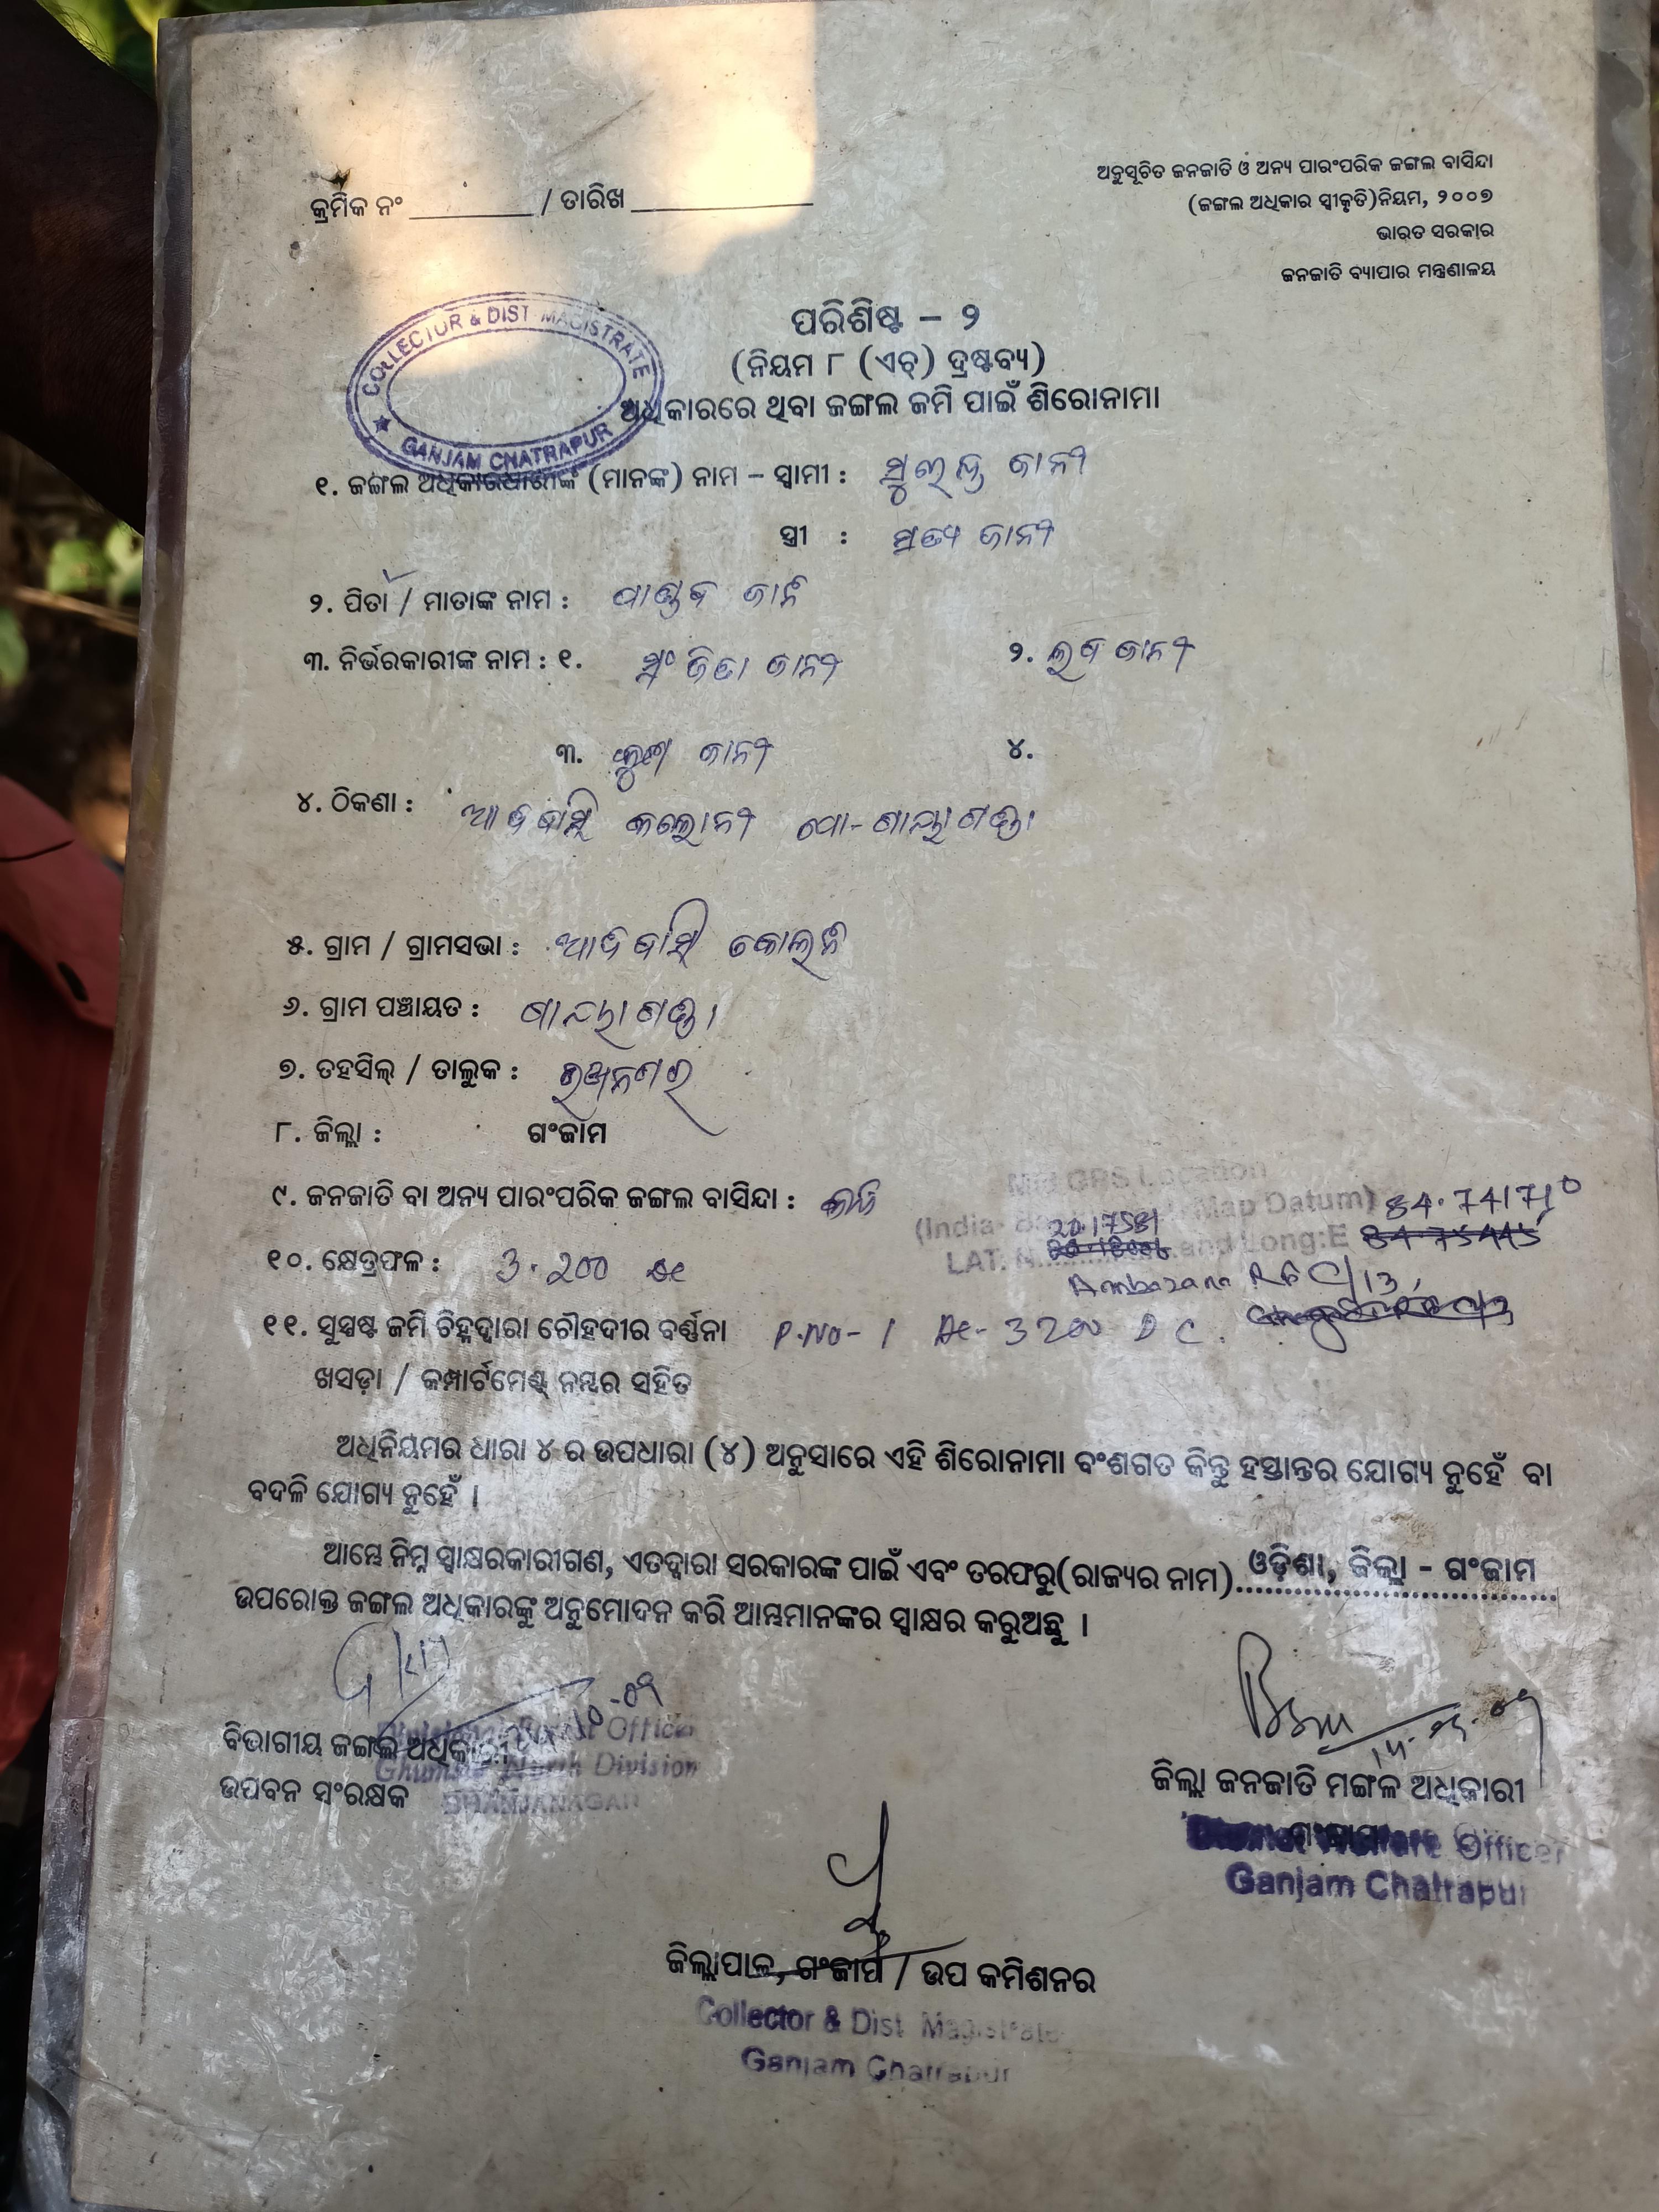 ଅନୁସୂଚିତ ଜନଜାତି ଓ ଅନ୍ୟ ପାରଂପରିକ ଜଙ୍ଗଲ ବାସିନ୍ଦା
(ଜଙ୍ଗଲ ଅଧିକାର ସ୍ୱୀକୃତି)ନିୟମ, ୨୦୦୭
ଭାରତ ସରକାର
ଜନଜାତି ବ୍ୟାପାର ମନ୍ତ୍ରଣାଳୟ
କ୍ରମିକ ନଂ ________ / ତାରିଖ ____________
COLLECTOR & DIST MAGISTRATE
GANJAM CHATRAPUR
ପରିଶିଷ୍ଟ – ୨
(ନିୟମ ୮ (ଏଚ୍) ଦ୍ରଷ୍ଟବ୍ୟ)
ଅଧିକାରରେ ଥିବା ଜଙ୍ଗଲ ଜମି ପାଇଁ ଶିରୋନାମା
୧. ଜଙ୍ଗଲ ଅଧିକାରଧାରୀଙ୍କ (ମାନଙ୍କ) ନାମ – ସ୍ୱାମୀ : ଜାନୀ
ସ୍ତ୍ରୀ : ଜାନୀ
୨. ପିତା / ମାତାଙ୍କ ନାମ : ପାଣ୍ଡବ ଜାନି
୩. ନିର୍ଭରକାରୀଙ୍କ ନାମ : ୧. ଜାନୀ ୨. ଲବ ଜାନୀ
୩. କୁଶ ଜାନୀ ୪.
୪. ଠିକଣା : ଆଦିବାସୀ କଲୋନୀ ପୋ-
୫. ଗ୍ରାମ / ଗ୍ରାମସଭା : ଆଦିବାସୀ କୋଲନି
୬. ଗ୍ରାମ ପଞ୍ଚାୟତ :
୭. ତହସିଲ୍ / ତାଲୁକ : ଭଞ୍ଜନଗର
୮. ଜିଲ୍ଲା : ଗଂଜାମ
୯. ଜନଜାତି ବା ଅନ୍ୟ ପାରଂପରିକ ଜଙ୍ଗଲ ବାସିନ୍ଦା :
GPS Location
(India- Map Datum) 84.74171°
LAT. N. 20.17581 and Long:E
୧୦. କ୍ଷେତ୍ରଫଳ : 3.200 Ac
RF C/13
୧୧. ସୁସ୍ପଷ୍ଟ ଜମି ଚିହ୍ନଦ୍ୱାରା ଚୌହଦୀର ବର୍ଣ୍ଣନା P.No- 1 Ac- 3200 D C.
ଖସଡ଼ା / କମ୍ପାର୍ଟମେଣ୍ଟ୍ ନମ୍ବର ସହିତ
ଅଧିନିୟମର ଧାରା ୪ ର ଉପଧାରା (୪) ଅନୁସାରେ ଏହି ଶିରୋନାମା ବଂଶଗତ କିନ୍ତୁ ହସ୍ତାନ୍ତର ଯୋଗ୍ୟ ନୁହେଁ ବା
ବଦଳି ଯୋଗ୍ୟ ନୁହେଁ ।
ଆମ୍ଭେ ନିମ୍ନ ସ୍ୱାକ୍ଷରକାରୀଗଣ, ଏତଦ୍ୱାରା ସରକାରଙ୍କ ପାଇଁ ଏବଂ ତରଫରୁ(ରାଜ୍ୟର ନାମ)..ଓଡ଼ିଶା, ଜିଲ୍ଲା - ଗଂଜାମ
ଉପରୋକ୍ତ ଜଙ୍ଗଲ ଅଧିକାରଙ୍କୁ ଅନୁମୋଦନ କରି ଆମ୍ଭମାନଙ୍କର ସ୍ୱାକ୍ଷର କରୁଅଛୁ ।
ବିଭାଗୀୟ ଜଙ୍ଗଲ ଅଧିକାରୀ
ଉପବନ ସଂରକ୍ଷକ
Divisional Forest Officer
Ghumsur North Division
BHANJANAGAR
ଜିଲ୍ଲା ଜନଜାତି ମଙ୍ଗଳ ଅଧିକାରୀ
Welfare Officer
Ganjam Chatrapur
ଜିଲ୍ଲାପାଳ, ଗଂଜାମ / ଉପ କମିଶନର
Collector & Dist Magistrate
Ganjam Chatrapur